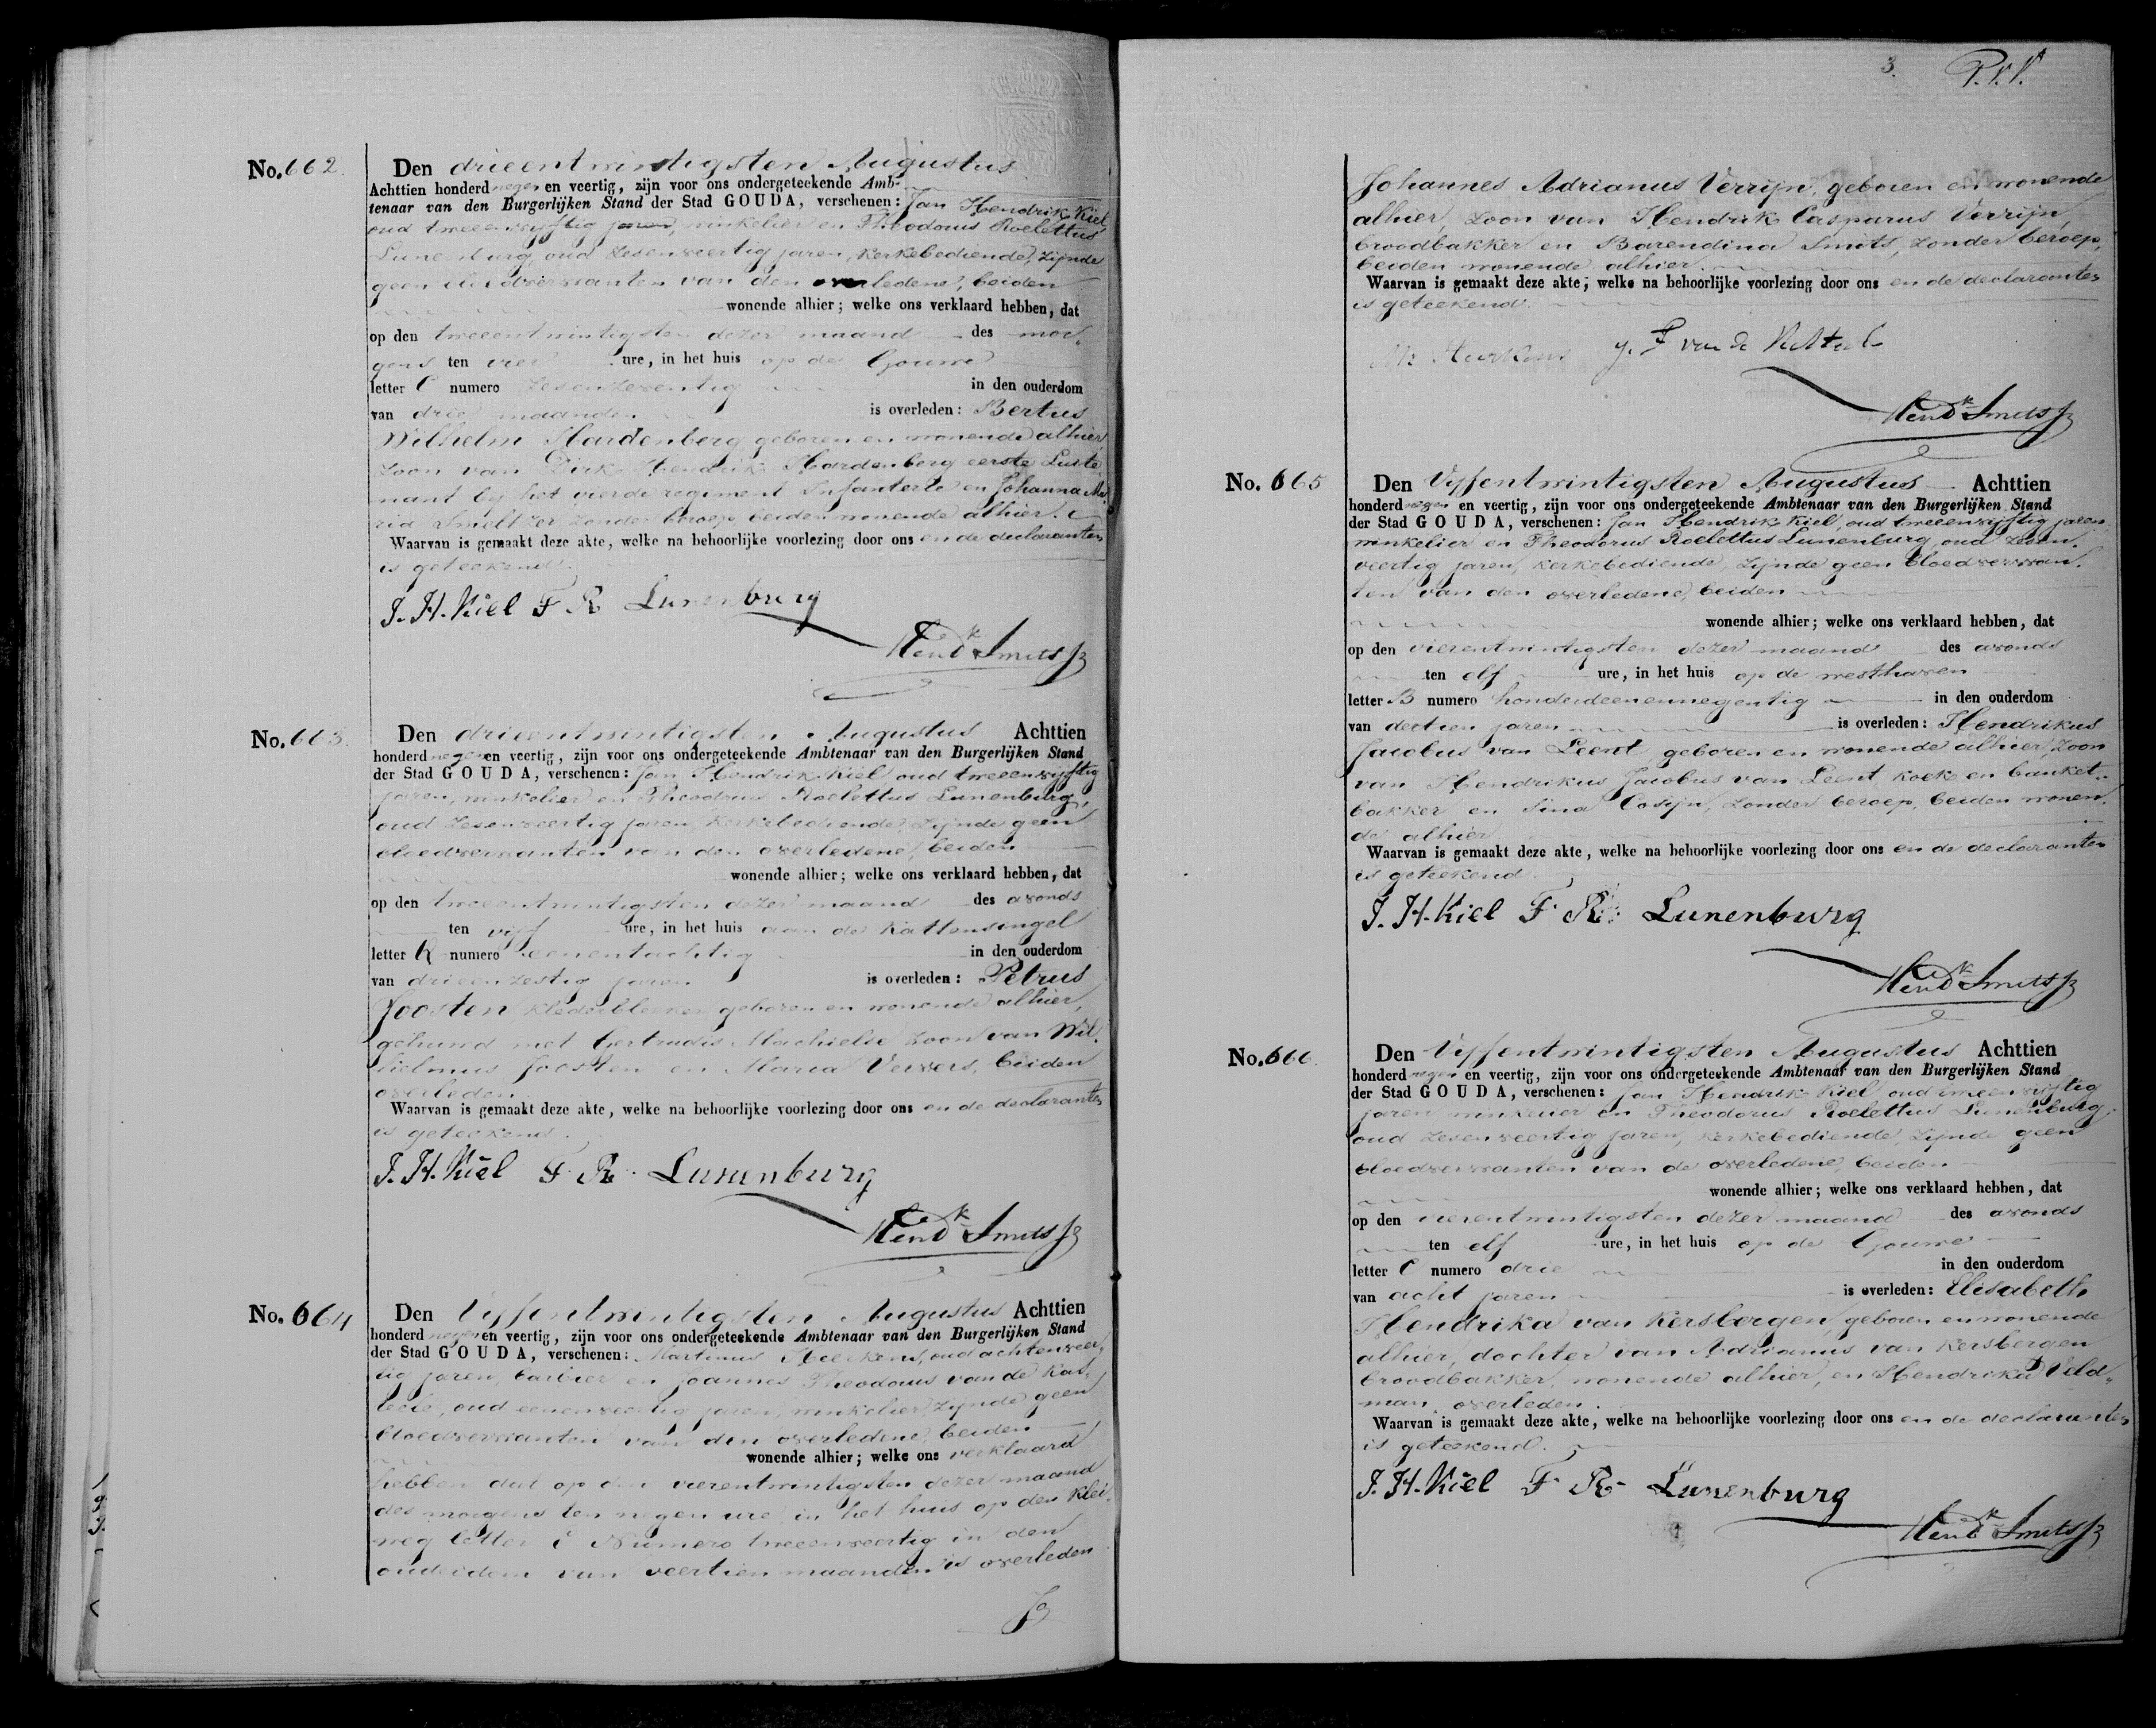 No. 662.
Den drieentwintigsten Augustus
Achttien honderd negen en veertig, zijn voor ons ondergeteekende Amb-
tenaar van den Burgerlijken Stand der Stad GOUDA, verschenen: Jan Hendrik Kiel
oud tweeenvyftig jaren, winkelier en Theodorus Roelettus
Lunenburg, oud zesenveertig jaren, kerkebediende, zijnde
geen bloedverwanten van den overledene, beiden
wonende alhier; welke ons verklaard hebben, dat
op den tweeentwintigsten dezer maand des mor-
gens ten vier ure, in het huis op de Gouwe
letter C numero zesenzeventig in den ouderdom
van drie maanden is overleden: Bertus
Wilhelm Hardenberg geboren en wonende alhier
zoon van Dirk Hendrik Hardenberg eerste Luite
nant by het vierde regiment Infanterie en Johanna Ma
ria Smeltzer, zonder beroep, beiden wonende alhier.
Waarvan is gemaakt deze akte, welke na behoorlijke voorlezing door ons en de declaranten
is geteekend.
J. H. Kiel F R Lunenburg
Hendk Smits Jz
No. 663.
Den drieentwintigsten Augustus Achttien
honderd negen en veertig, zijn voor ons ondergeteekende Ambtenaar van den Burgerlijken Stand
der Stad GOUDA, verschenen: Jan Hendrik Kiel oud tweeenvyftig
jaren, winkelier en Theodorus Roelettus Lunenburg,
oud zesenveertig jaren, kerkebediende, zijnde geen
bloedverwanten van den overledene, beiden
wonende alhier; welke ons verklaard hebben, dat
op den tweeentwintigsten dezer maand des avonds
ten vijf ure, in het huis aan de Kattensingel
letter R numero eenentachtig in den ouderdom
van drieenzestig jaren is overleden: Petrus
Joosten, kleederbleeker geboren en wonende alhier,
gehuwd met Gertrudis Machielse zoon van Wil-
helmus Joosten en Maria Verwers, beiden
overleden.
Waarvan is gemaakt deze akte, welke na behoorlijke voorlezing door ons en de declaranten
is geteekend.
J. H. Kiel F. R. Lunenburg
Hendk Smits Jz
No. 664
Den Vyfentwintigsten Augustus Achttien
honderd negen en veertig, zijn voor ons ondergeteekende Ambtenaar van den Burgerlijken Stand
der Stad GOUDA, verschenen: Martinus Heerkens, oud achtenveer-
tig jaren, barbier en Joannes Theodorus van de Kas-
teele, oud eenenveertig jaren, winkelier, zijnde geen
bloedverwanten van den overledene, beiden
wonende alhier; welke ons verklaard
hebben dat op den vierentwintigsten dezer maand
des morgens ten negen ure, in het huis op den Klei-
weg letter i Numero tweeenveertig in den
ouderdom van veertien maanden is overleden
Jo
3. P.V.V.
Johannes Adrianus Verrijn, geboren en wonende
alhier, zoon van Hendrik Casparus Verrijn,
broodbakker en Barendina Smits, zonder beroep,
beiden wonende alhier.
Waarvan is gemaakt deze akte; welke na behoorlijke voorlezing door ons en de declaranten
is geteekend.
M. Heerkens
Hendk Smits Jz
No. 665
Den Vyfentwintigsten Augustus Achttien
honderd negen en veertig, zijn voor ons ondergeteekende Ambtenaar van den Burgerlijken Stand
der Stad GOUDA, verschenen: Jan Hendrik Kiel, oud tweeenvijftig jaren,
winkelier en Theodorus Roelettus Lunenburg, oud zesen-
veertig jaren, kerkebediende, zijnde geen bloedverwan-
ten van den overledene, beiden
wonende alhier; welke ons verklaard hebben, dat
op den vierentwintigsten dezer maand des avonds
ten elf ure, in het huis op de westhaven
letter B numero honderdeenennegentig in den ouderdom
van dertien jaren is overleden: Hendrikus
Jacobus van Leent geboren en wonende alhier, zoon
van Hendrikus Jacobus van Leent, koek en banket-
bakker en Sina Cosijn, zonder beroep, beiden wonen-
de alhier.
Waarvan is gemaakt deze akte, welke na behoorlijke voorlezing door ons en de declaranten
is geteekend.
J. H. Kiel F. R. Lunenburg
Hendk Smits Jz
No. 666.
Den Vyfentwintigsten Augustus Achttien
honderd negen en veertig, zijn voor ons ondergeteekende Ambtenaar van den Burgerlijken Stand
der Stad GOUDA, verschenen: Jan Hendrik Kiel oud tweeenvijftig
jaren winkelier en Theodorus Roelettus Lunenburg,
oud zesenveertig jaren, kerkebediende, zijnde geen
bloedverwanten van de overledene, beiden
wonende alhier; welke ons verklaard hebben, dat
op den vierentwintigsten dezer maand des avonds
ten elf ure, in het huis op de Gouwe
letter C numero drie in den ouderdom
van acht jaren is overleden: Elisabeth
Hendrika van Kersbergen, geboren en wonende
alhier, dochter van Adrianus van Kersbergen
broodbakker, wonende alhier, en Hendrika Veld-
man, overleden.
Waarvan is gemaakt deze akte, welke na behoorlijke voorlezing door ons en de declaranten
is geteekend.
J. H. Kiel F. R. Lunenburg
Hendk Smits Jz